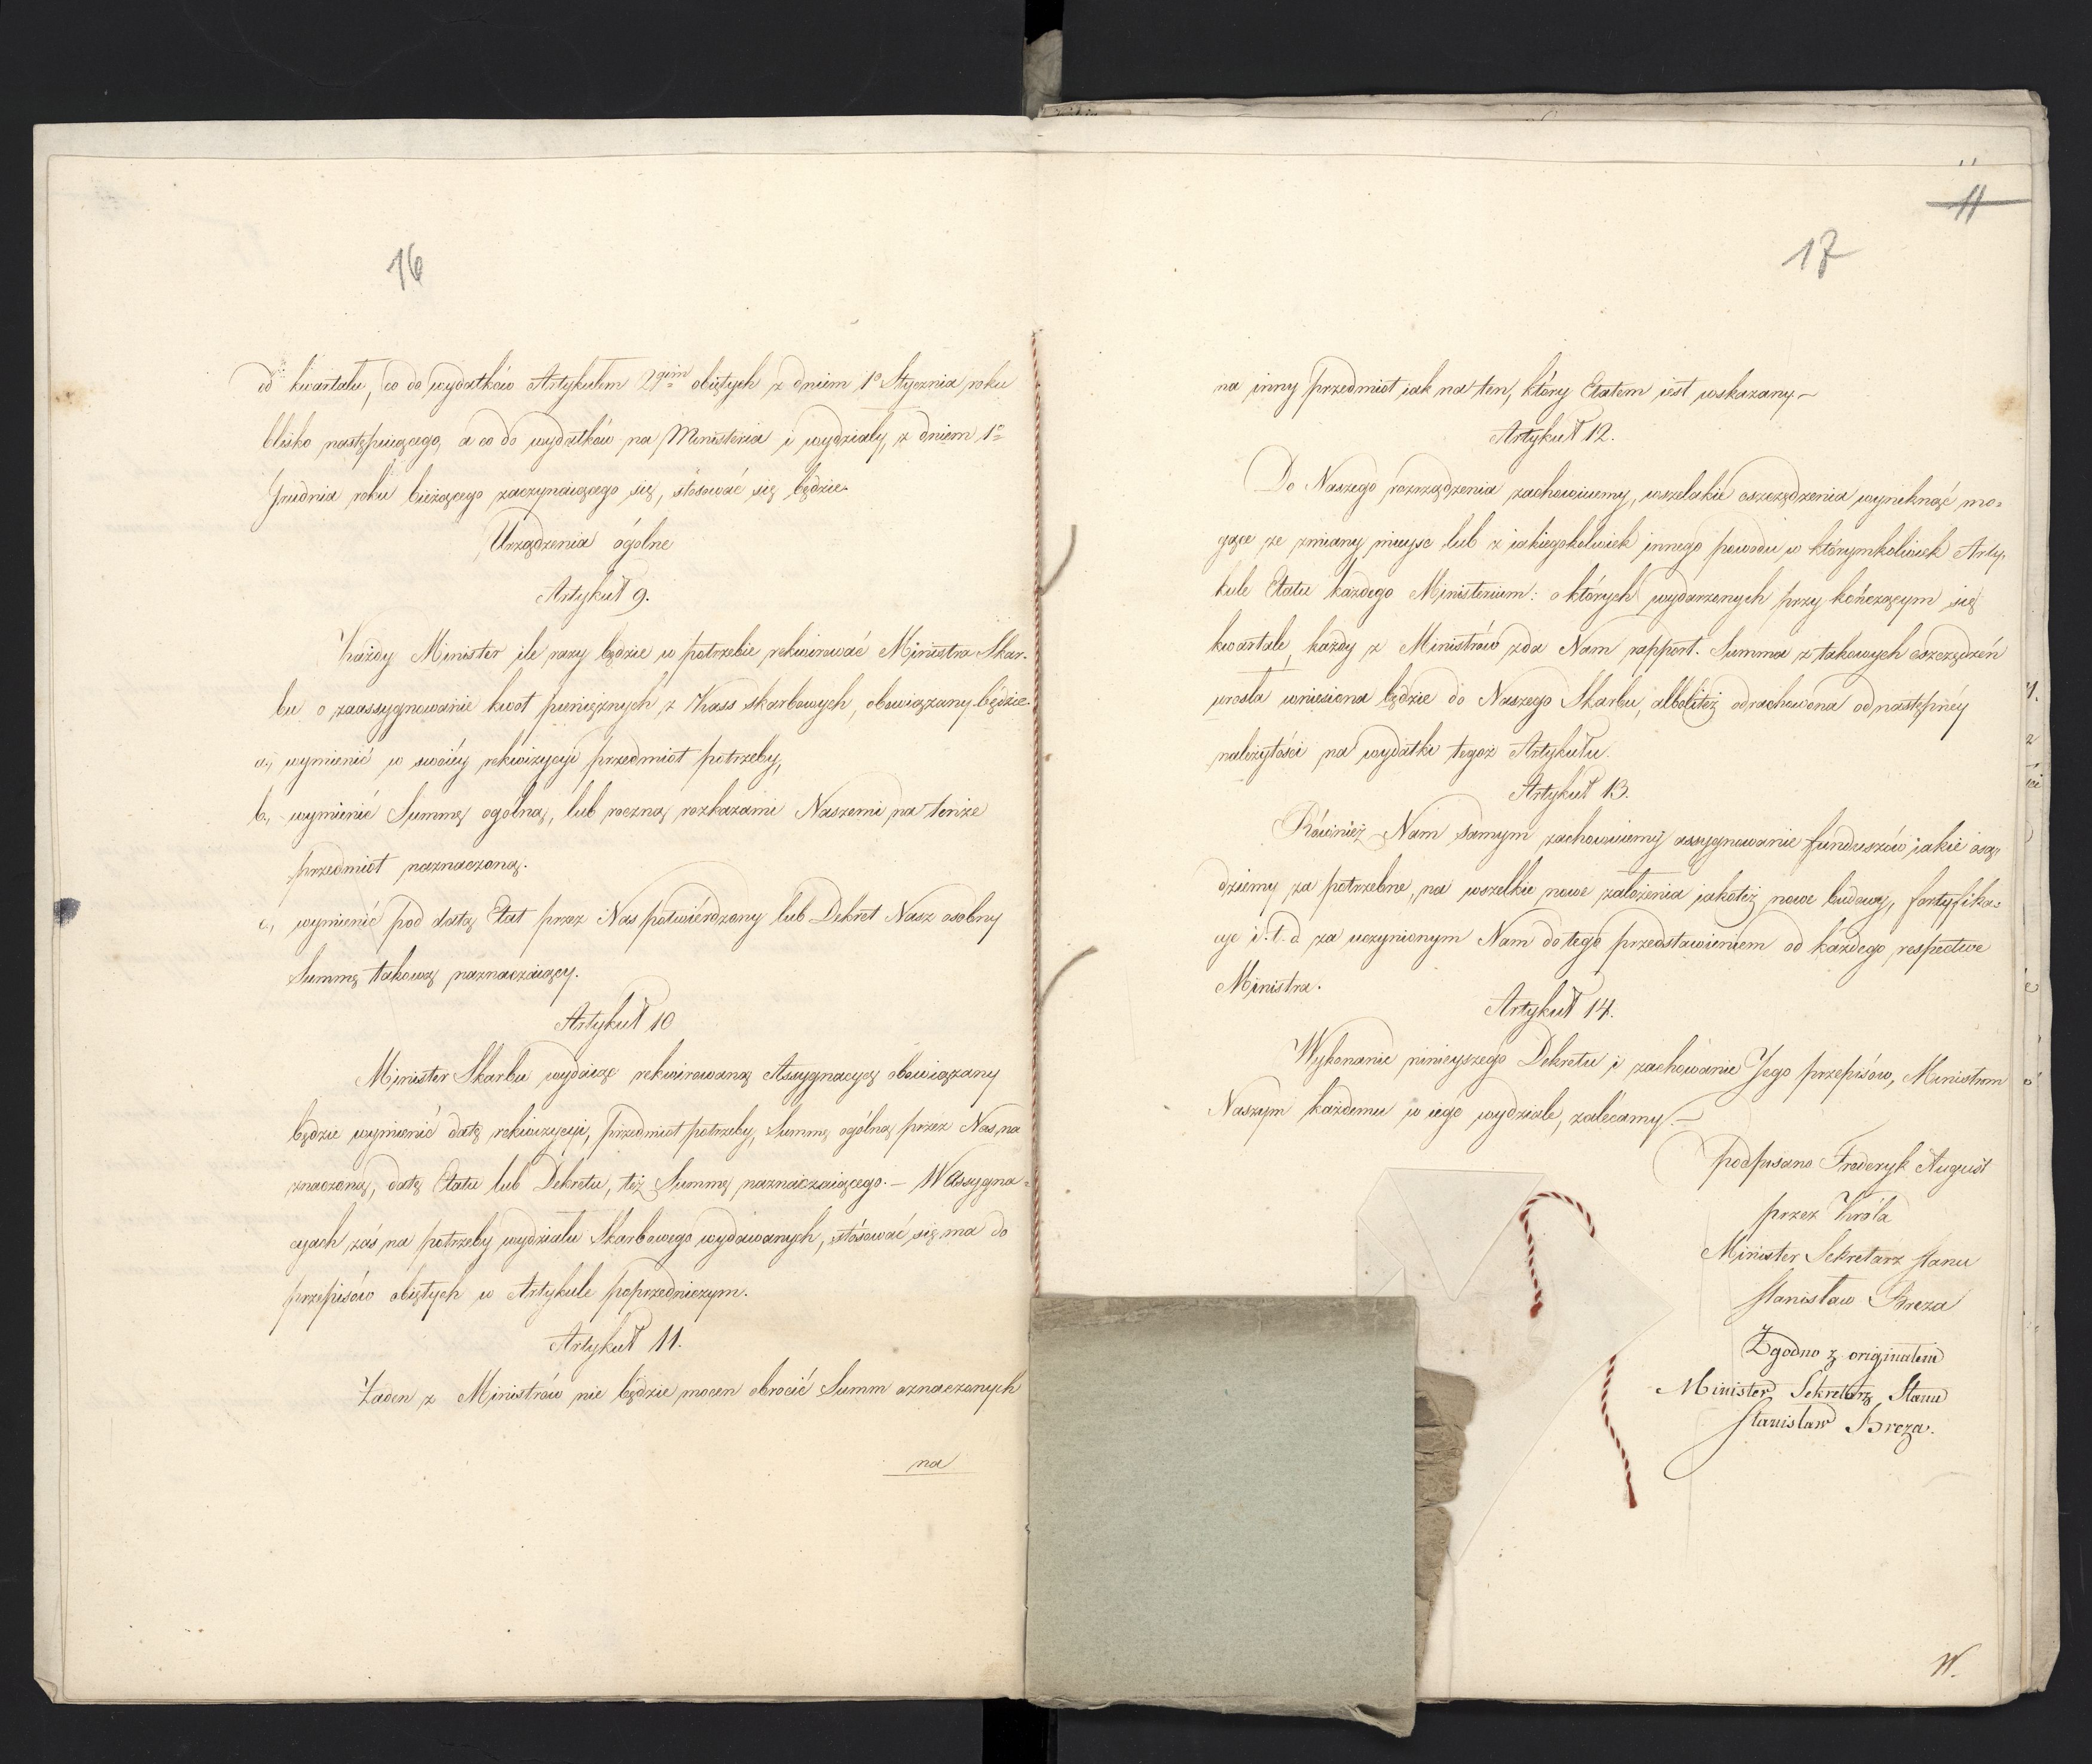 16
od kwartału, co do wydatków Artykułem 2gim obiętych z dniem 1o Stycznia roku
blisko następuiącego, a co do wydatków na Ministeria i wydziały, z dniem 1o
Grudnia roku bieżącego zaczynaiącego się, stosować się będzie.
Urządzenia ogólne
Artykuł 9.
Każdy Minister ile razy będzie w potrzebie rekwirować Ministra Skar-
bu o zaassygnowanie kwot pieniężnych z Kass skarbowych, obowiązany będzie.
a, wymienić w swoiéy rekwizycyi przedmiot potrzeby,
b, wymienić Summę ogólną, lub roczną rozkazami Naszemi na tenże
przedmiot naznaczoną.
c, wymienić pod datą Etat przez Nas potwiérdzony lub Dekret Nasz osobny
Summę takową naznaczaiący.
Artykuł 10
Minister Skarbu wydaiąc rekwirowaną Assygnacyą obowiązany
będzie wymienić datę rekwizycyi, przedmiot potrzeby, Summę ogólną przez Nas na
znaczoną, datę Etatu lub Dekretu, też Summę naznaczaiącego. – W Assygna-
cyach zaś na potrzeby wydziału Skarbowego wydawanych, stósować się ma do
przepisów obiętych w Artykule poprzedniczym.
Artykuł 11.
Żaden z Ministrów nie będzie mocen obrócić Summ oznaczonych
na
11
17
na inny przedmiot iak na ten, który Etatem iest wskazany –
Artykuł 12.
Do Naszego rozrządzenia zachowuiemy, wszelakie oszczędzenia wyniknąć mo-
gące ze zmiany mieysc lub z iakiegokolwiek innego powodu w którymkolwiek Arty-
kule Etatu każdego Ministerium: o których wydarzonych przy kończącym się
kwartale, każdy z Ministrów zda Nam rapport. Summa z takowych oszczędzeń
urosła wniesiona będzie do Naszego Skarbu, albolitéż odrachowana od następnéy
należytości na wydatki tegoż Artykułu.
Artykuł 13.
Również Nam samym zachowuiemy assygnowanie funduszów iakie osą-
dziemy za potrzebne, na wszelkie nowe założenia iakotéż nowe budowy, fortyfika-
cye i. t. d. za uczynionym Nam do tego przedstawieniem od każdego respective
Ministra.
Artykuł 14.
Wykonanie ninieyszego Dekretu i zachowanie Jego przepisów, Ministrom
Naszym każdemu w iego wydziale, zalecamy. –
podpisano Fryderyk August
przez Króla
Minister Sekretarz stanu
Stanisław Breza
Zgodno z originałem
Minister Sekretarz Stanu
Stanisław Breza.
W.